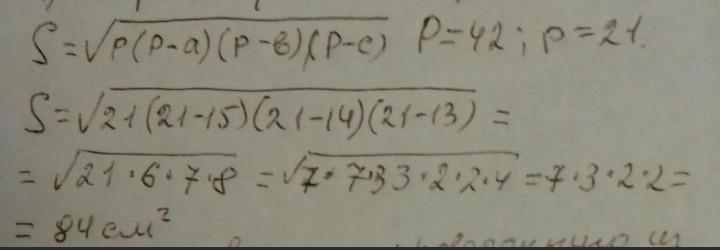 S=√p(p-a)(p-в)(p-c) P=42; p=21.
S=√21(21-15)(21-14)(21-13) =
= √21·6·7·8 = √7·7·33·2·2·4 = 7·3·2·2=
= 84 см²